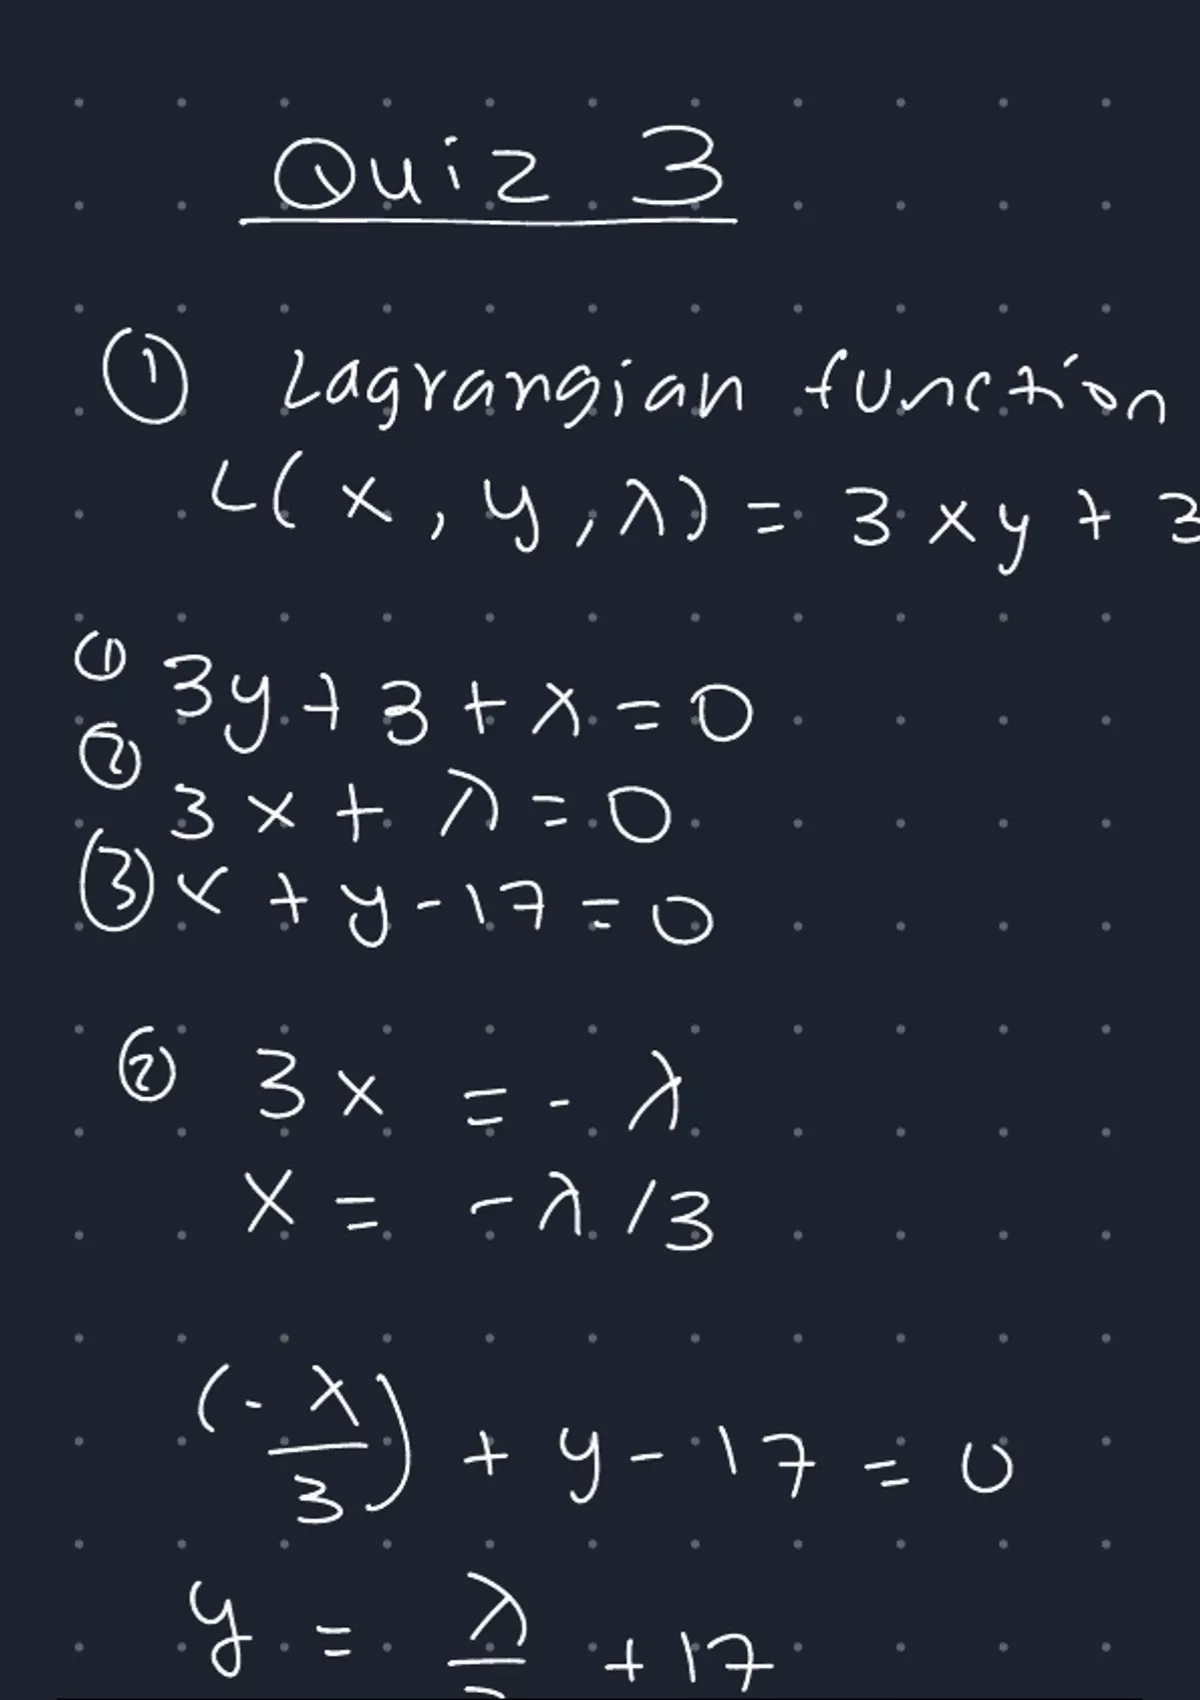 Quiz 3
① Lagrangian function
L(x, y, λ) = 3xy + 3
① 3y + 3 + λ = 0
② 3x + λ = 0
③ x + y - 17 = 0
② 3x = -λ
x = -λ/3
(-λ/3) + y - 17 = 0
y = λ/3 + 17